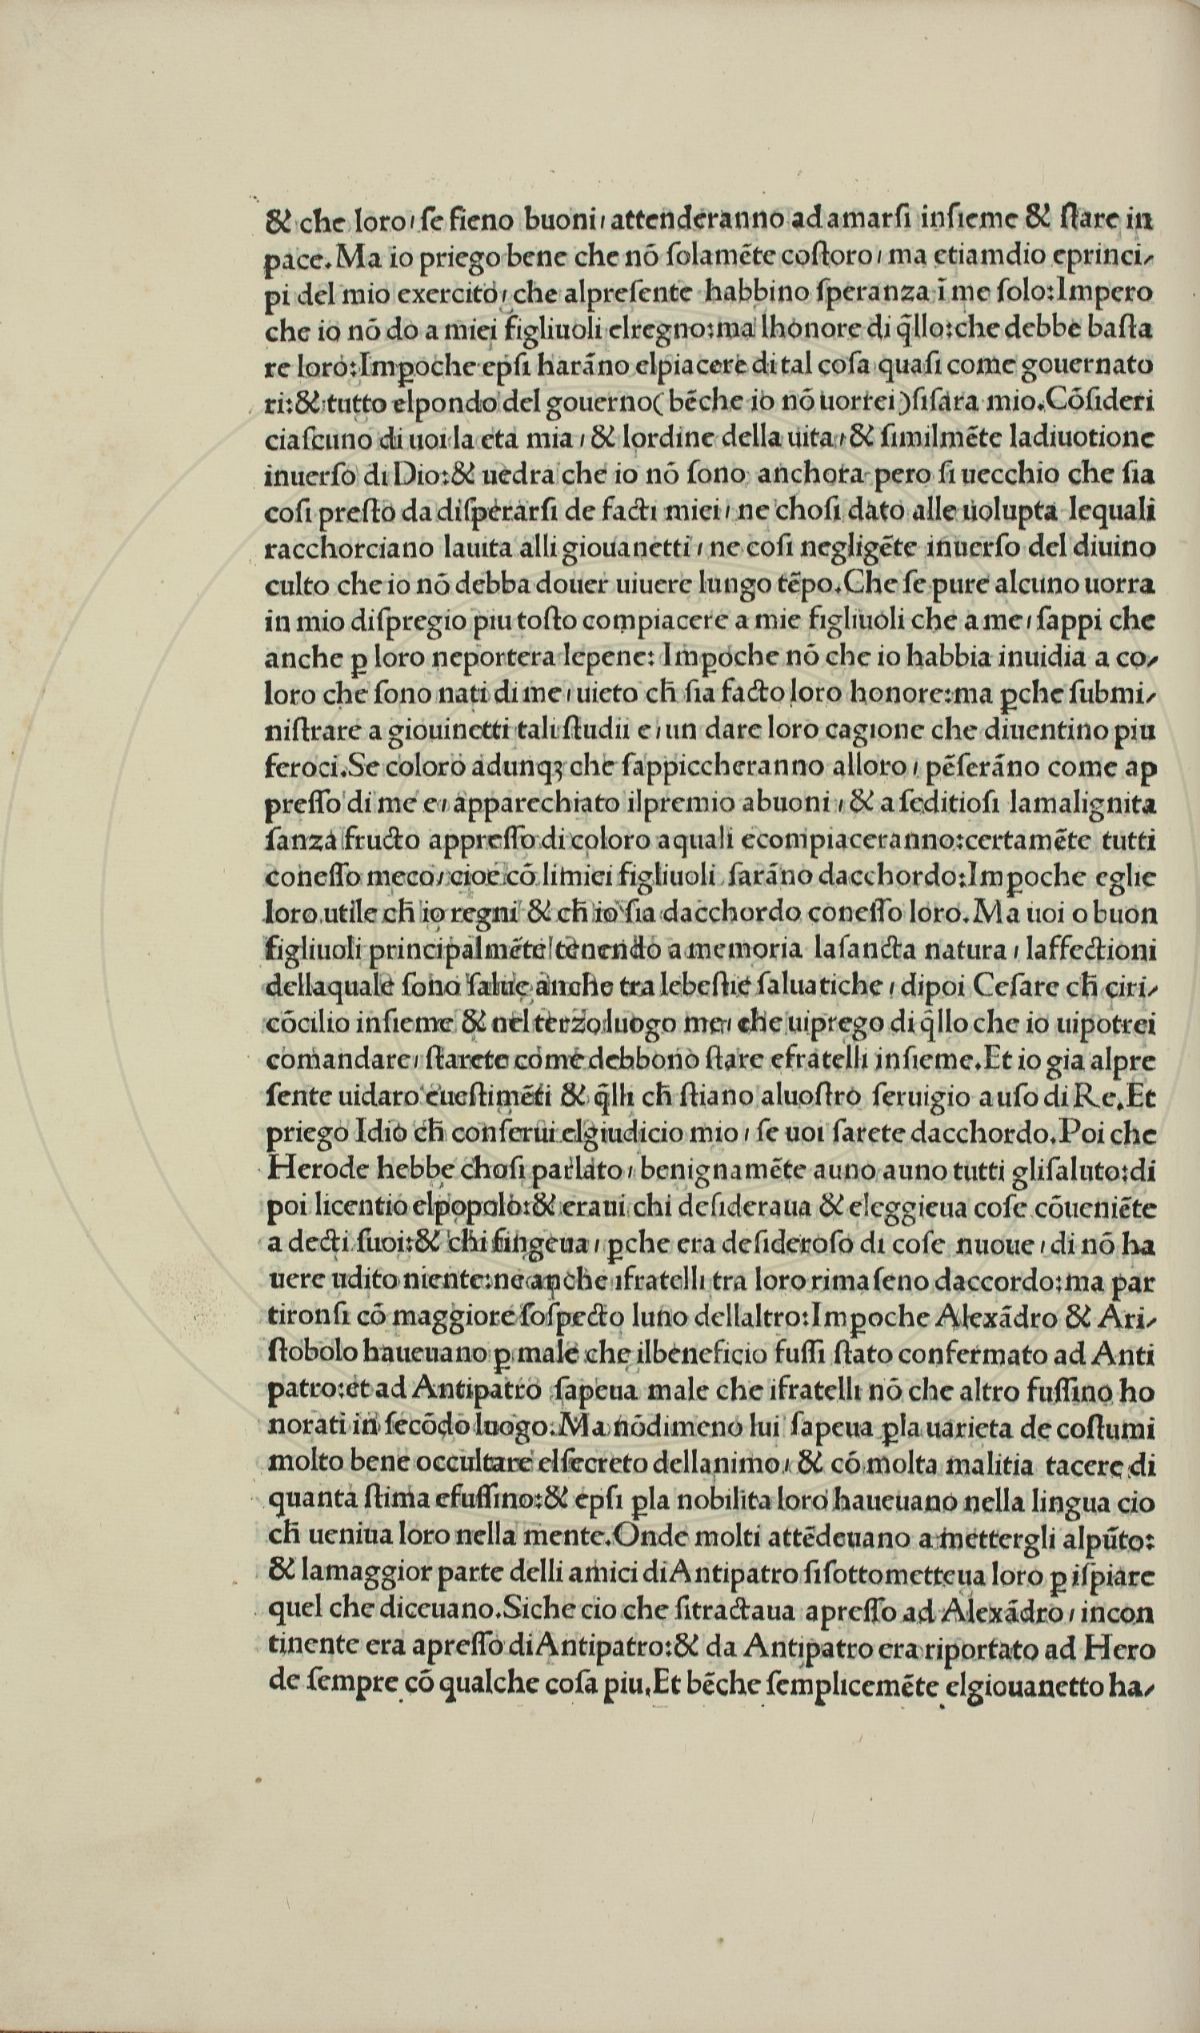 & che loro, ſe ſieno buoni, attenderanno ad amarſi inſieme & ſtare in
pace. Ma io priego bene che nõ ſolamẽte coſtoro, ma etiamdio eprinci-
pi del mio exercito, che alpreſente habbino ſperanza ĩ me ſolo: Impero
che io nõ do a miei figliuoli elregno: ma lhonore di q̃llo: che debbe baſta
re loro: Imꝑoche epſi harãno elpiacere di tal coſa quaſi come gouernato
ri: & tutto elpondo del gouerno (bẽche io nõ uorrei) ſiſara mio. Cõſideri
ciaſcuno di uoi la eta mia, & lordine della uita, & ſimilmẽte ladiuotione
inuerſo di Dio: & uedra che io nõ ſono anchora pero ſi uecchio che ſia
coſi preſto da diſperarſi de facti miei, ne choſi dato alle uolupta lequali
racchorciano lauita alli giouanetti, ne coſi negligẽte inuerſo del diuino
culto che io nõ debba douer uiuere lungo tẽpo. Che ſe pure alcuno uorra
in mio diſpregio piu toſto compiacere a mie figliuoli che a me, ſappi che
anche ꝑ loro neportera lepene: Imꝑoche nõ che io habbia inuidia a co-
loro che ſono nati di me, uieto ch̃ ſia facto loro honore: ma ꝑche ſubmi-
niſtrare a giouinetti tali ſtudii e, un dare loro cagione che diuentino piu
feroci. Se coloro adunqꝫ che ſappiccheranno alloro, pẽſerãno come ap
preſſo di me e, apparechiato ilpremio abuoni, & a ſeditioſi lamalignita
ſanza fructo appreſſo di coloro aquali ecompiaceranno: certamẽte tutti
coneſſo meco, cioe cõ limiei figliuoli ſarãno dacchordo: Imꝑoche eglie
loro utile ch̃ io regni & ch̃ io ſia dacchordo coneſſo loro. Ma uoi o buon
figliuoli principalmẽte tenendo a memoria laſancta natura, laffectioni
dellaquale ſono ſalue anche tra lebeſtie ſaluatiche, dipoi Ceſare ch̃ ciri-
cõcilio inſieme & nel terzo luogo me, che uiprego di q̃llo che io uipotrei
comandare, ſtarete come debbono ſtare efratelli inſieme. Et io gia alpre
ſente uidaro eueſtimẽti & q̃lli ch̃ ſtiano aluoſtro ſeruigio a uſo di Re. Et
priego Idio ch̃ conſerui elgiudicio mio, ſe uoi ſarete dacchordo. Poi che
Herode hebbe choſi parlato, benignamẽte auno auno tutti gliſaluto: di
poi licentio elpopolo: & eraui chi deſideraua & eleggieua coſe cõueniẽte
a decti ſuoi: & chi fingeua, ꝑche era deſideroſo di coſe nuoue, di nõ ha
uere udito niente: ne anche ifratelli tra loro rimaſeno daccordo: ma par
tironſi cõ maggiore ſoſpecto luno dellaltro: Imꝑoche Alexãdro & Ari-
ſtobolo haueuano ꝑ male che ilbeneficio fuſſi ſtato confermato ad Anti
patro: et ad Antipatro ſapeua male che ifratelli nõ che altro fuſſino ho
norati in ſecõdo luogo. Ma nõdimeno lui ſapeua ꝑla uarieta de coſtumi
molto bene occultare elſecreto dellanimo, & cõ molta malitia tacere di
quanta ſtima efuſſino: & epſi ꝑla nobilita loro haueuano nella lingua cio
ch̃ ueniua loro nella mente. Onde molti attẽdeuano a mettergli alpũto:
& lamaggior parte delli amici di Antipatro ſiſottometteua loro ꝑ iſpiare
quel che diceuano. Siche cio che ſitractaua apreſſo ad Alexãdro, incon
tinente era apreſſo di Antipatro: & da Antipatro era riportato ad Hero
de ſempre cõ qualche coſa piu. Et bẽche ſemplicemẽte elgiouanetto ha-